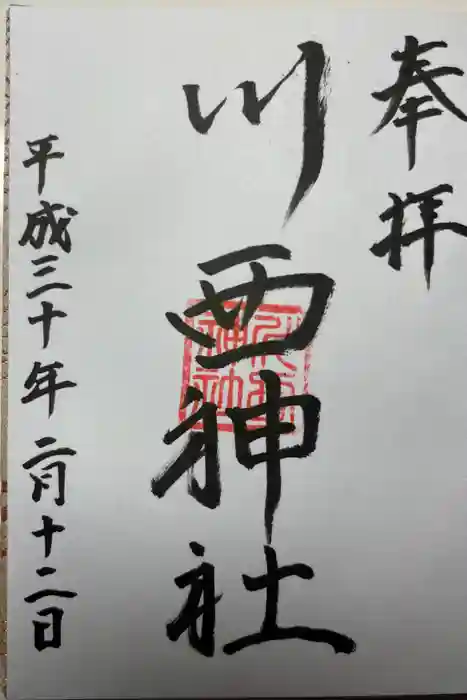 奉拝
川西神社
平成三十年二月十二日